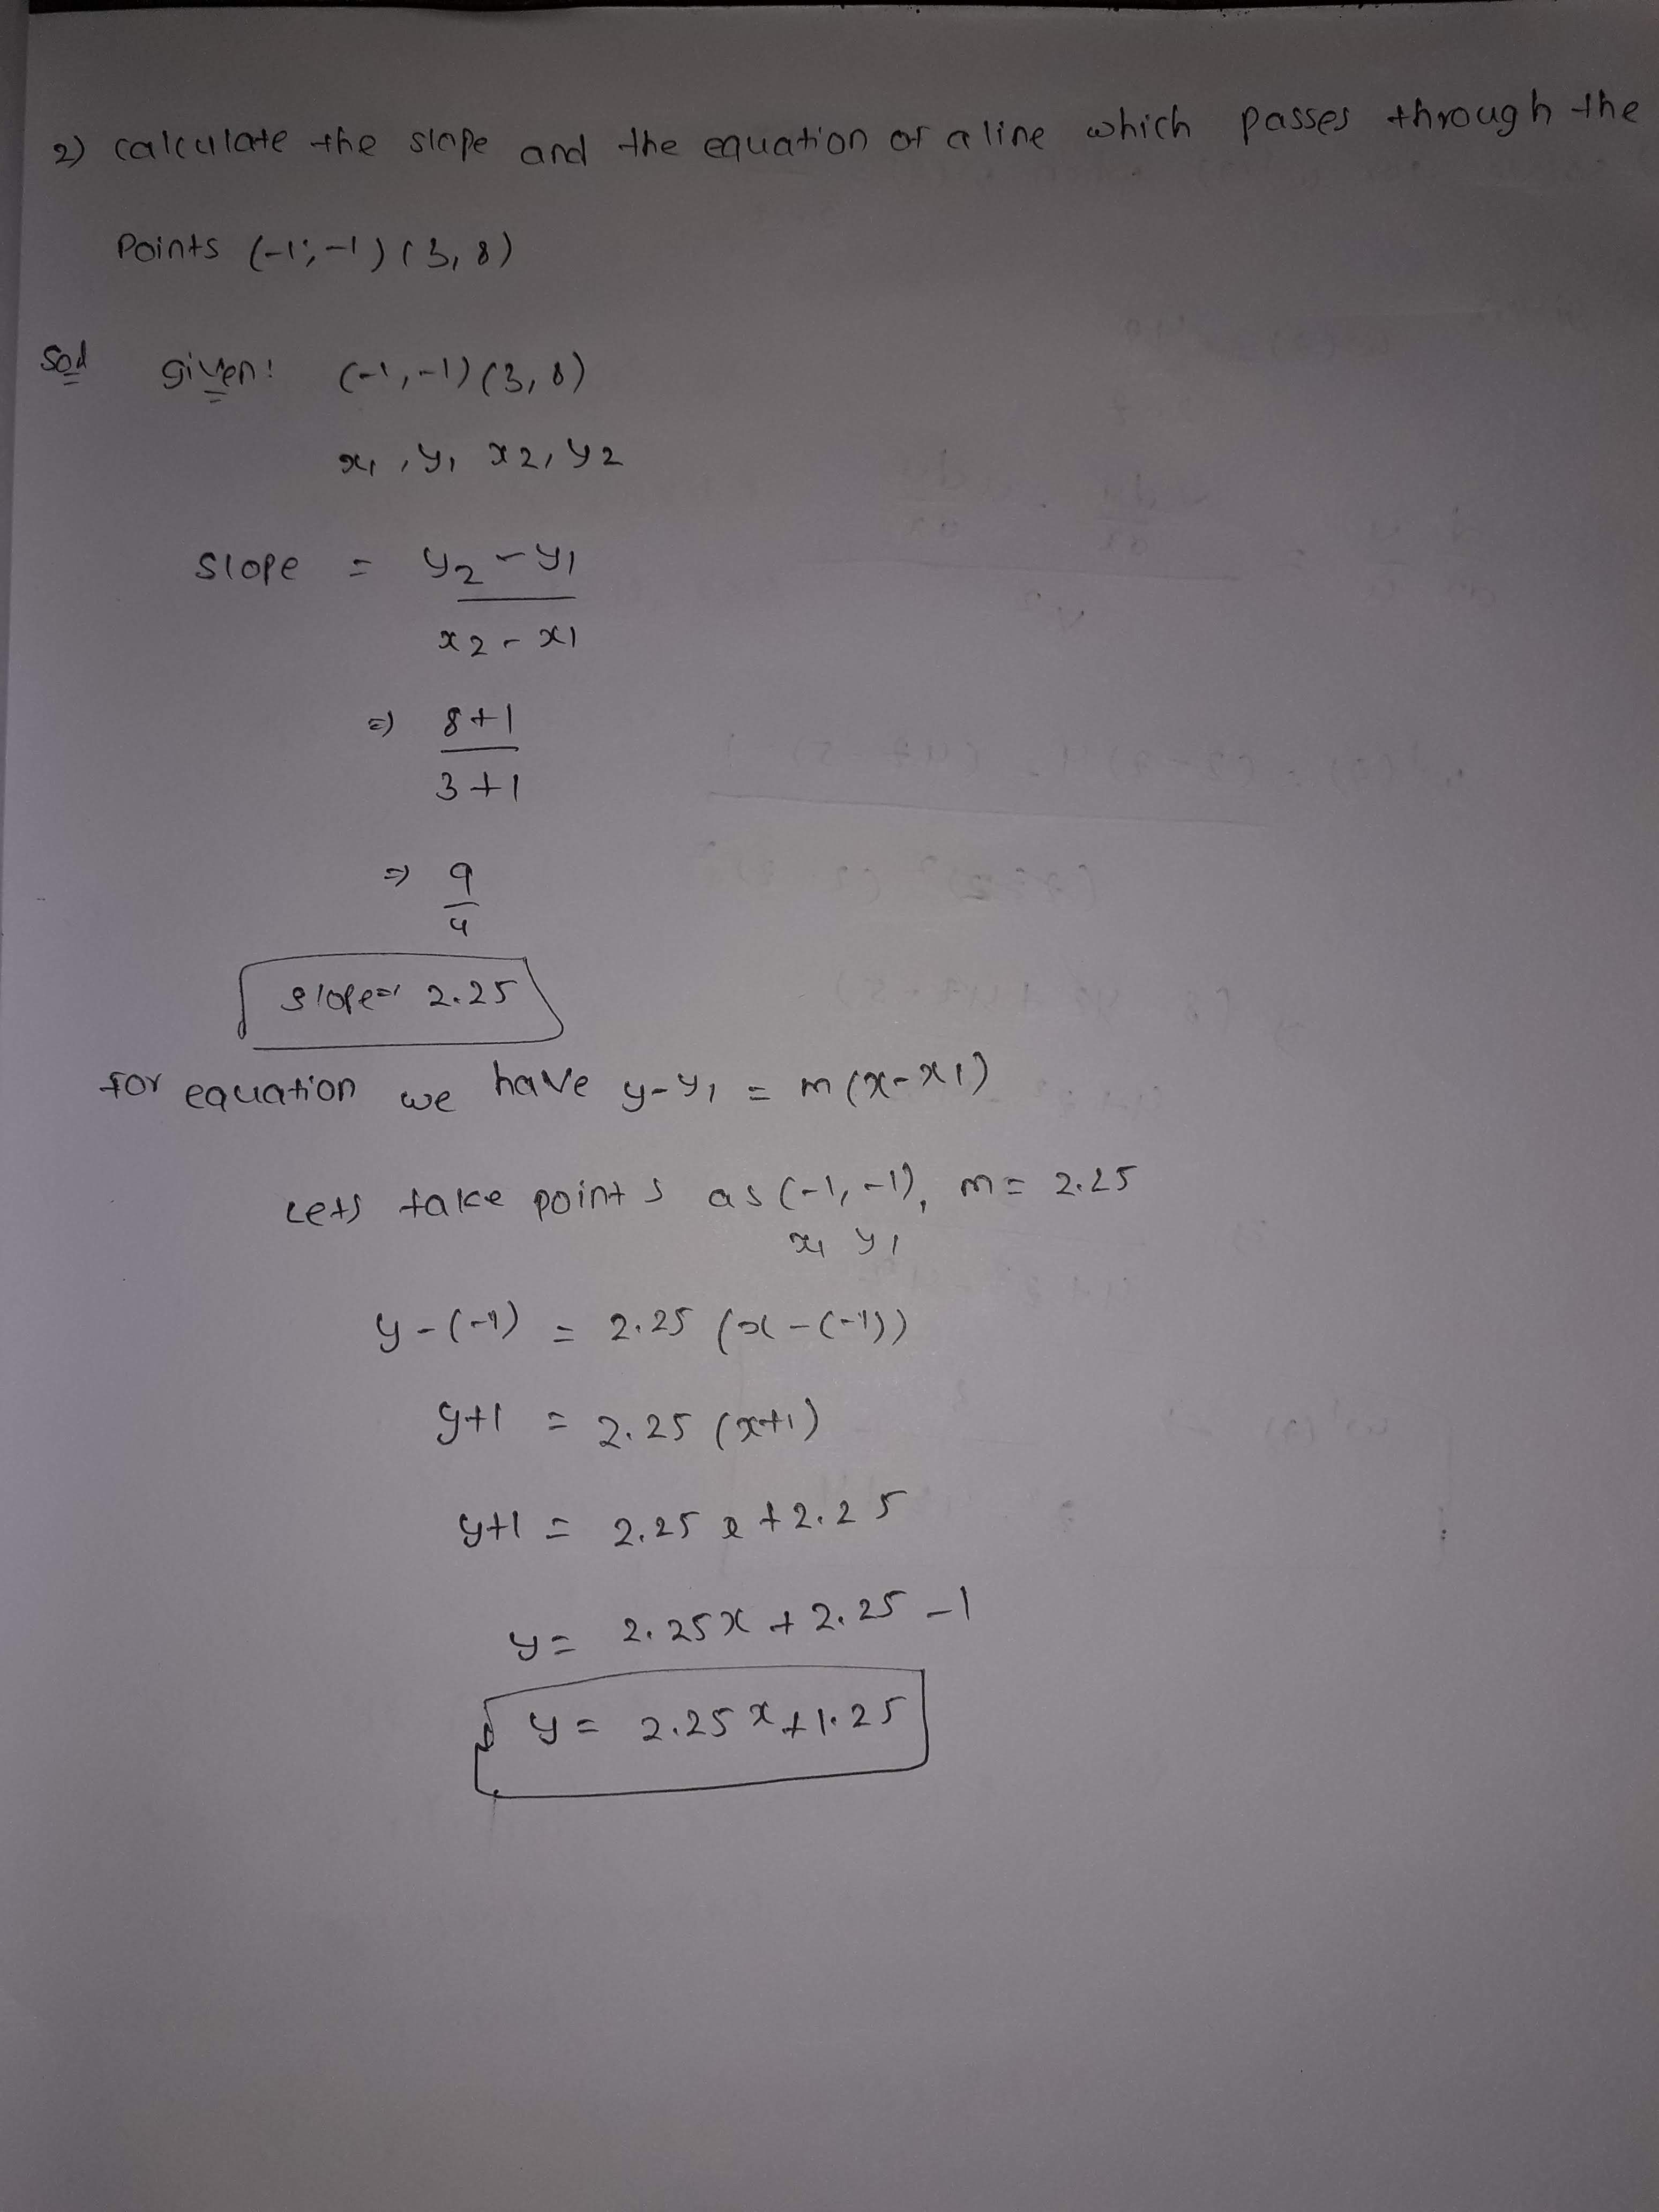 2) calculate the slope and the equation of a line which passes through the
Points (-1,-1) (3,8)
Sol given: (-1,-1) (3,8)
x1, y1 x2, y2
slope = y2 - y1
x2 - x1
=> 8+1
3+1
=> 9
4
slope= 2.25
for equation we have y-y1 = m(x-x1)
Lets take points as (-1,-1), m= 2.25
x1 y1
y-(-1) = 2.25 (x-(-1))
y+1 = 2.25 (x+1)
y+1 = 2.25 x + 2.25
y = 2.25x + 2.25 -1
y = 2.25x + 1.25